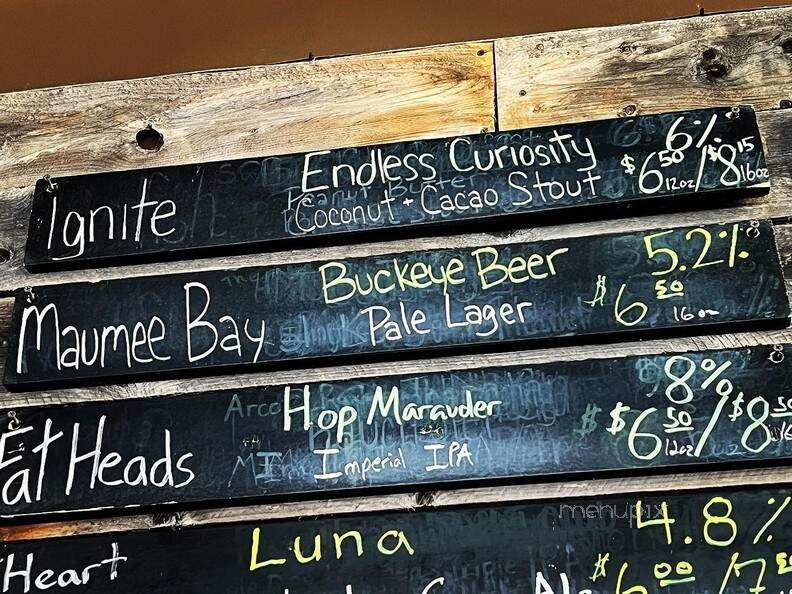 Endless Curiosity 6%
Ignite Coconut + Cacao Stout $6.50 12oz/$8.15 16oz
Buckeye Beer 5.2%
Maumee Bay Pale Lager $6.50 16oz
Hop Marauder 8%
Fat Heads Imperial IPA $6.50 12oz/$8.50
menupix
Luna 4.8%
Heart